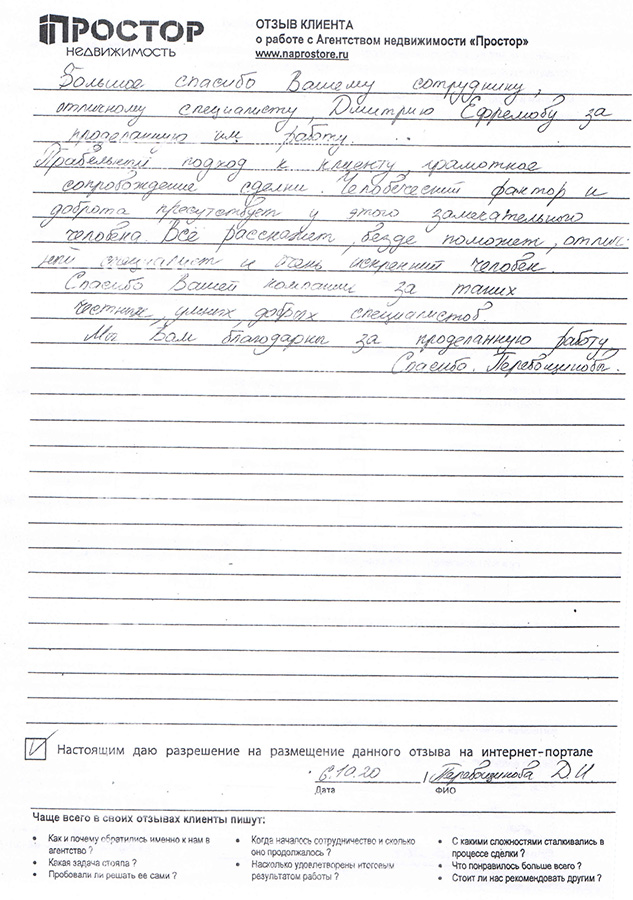 ПРОСТОР
НЕДВИЖИМОСТЬ
ОТЗЫВ КЛИЕНТА
о работе с Агентством недвижимости «Простор»
www.naprostore.ru
Большое спасибо Вашему сотруднику,
отличному специалисту, Дмитрию Ефремову за
проделанную им работу.
Правильный подход к клиенту, грамотное
сопровождение сделки. Человеческий фактор и
доброта пресутствует у этого замечательного
человека. Всё расскажет, везде поможет, отлич-
ный специалист и очень искренний человек.
Спасибо Вашей компании за таких
честных, умных, добрых специалистов.
Мы Вам благодарны за проделанную работу
Спасибо. Перевощиковы.
Настоящим даю разрешение на размещение данного отзыва на интернет-портале
6.10.20 / Перевощикова Д.И
Дата ФИО
Чаще всего в своих отзывах клиенты пишут:
• Как и почему обратились именно к нам в
агентство ?
• Какая задача стояла ?
• Пробовали ли решать ее сами ?
• Когда началось сотрудничество и сколько
оно продолжалось ?
• Насколько удовлетворены итоговым
результатом работы ?
• С какими сложностями сталкивались в
процессе сделки ?
• Что понравилось больше всего ?
• Стоит ли нас рекомендовать другим ?